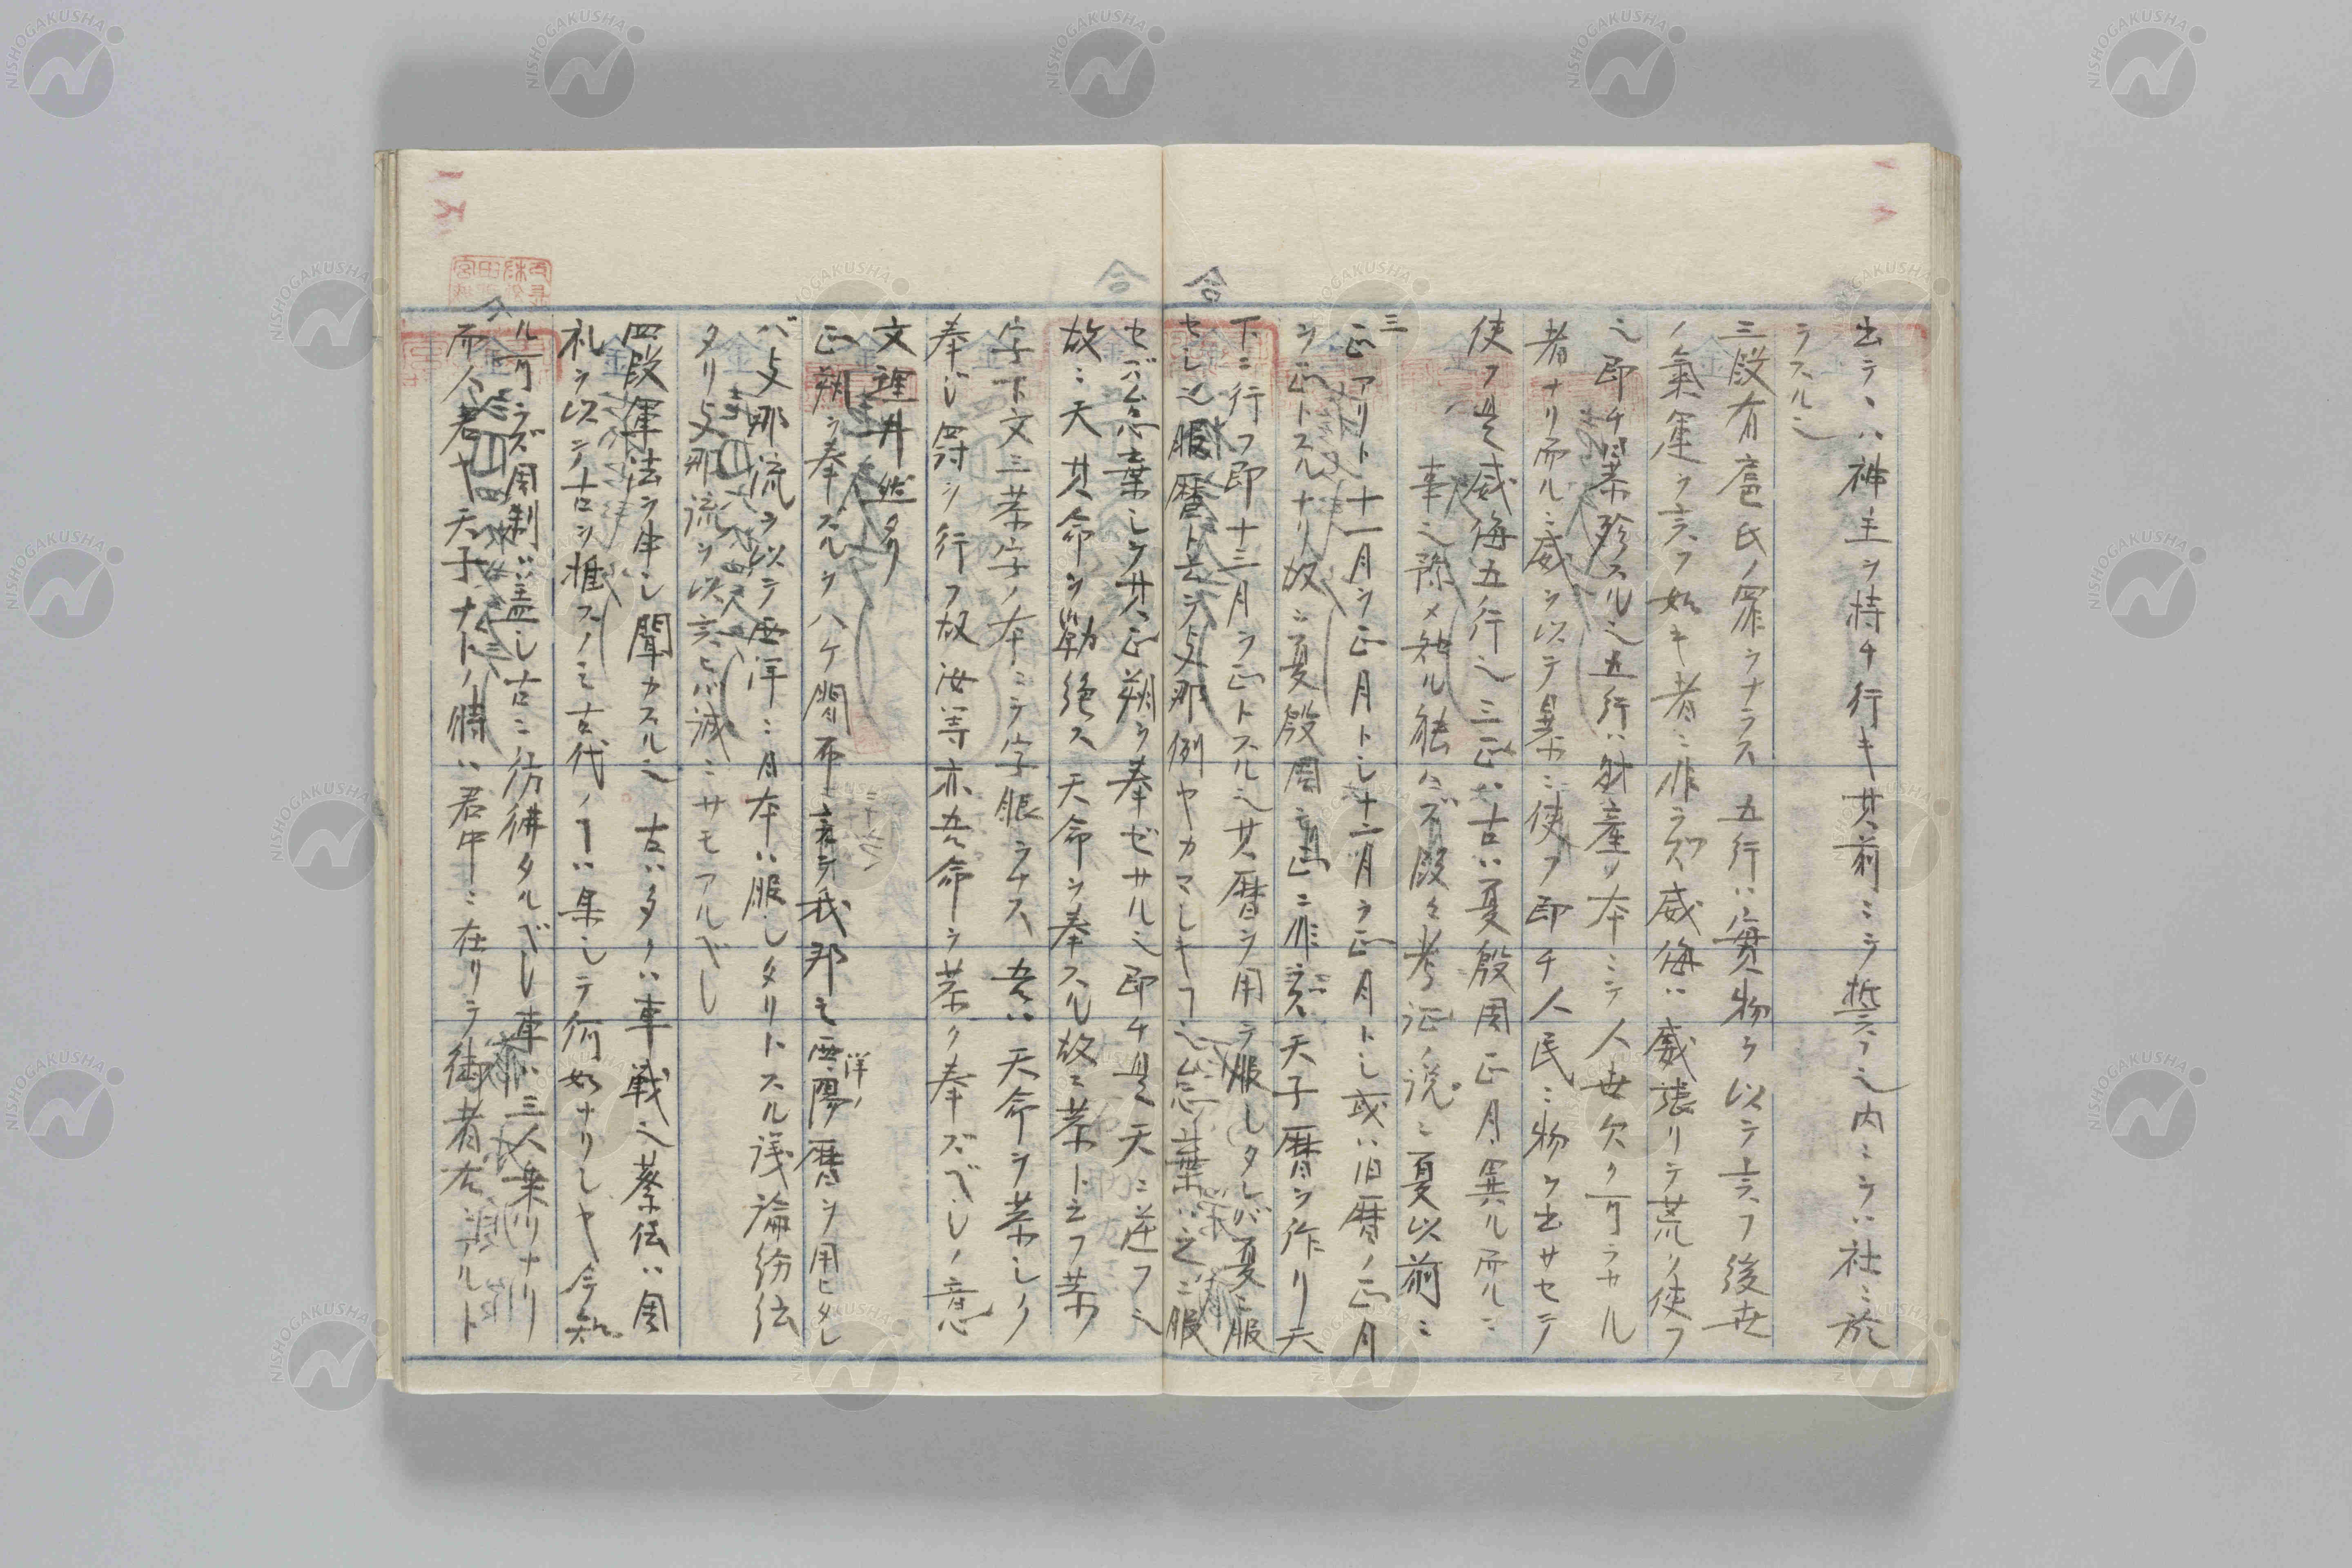 出テヽハ神主ヲ恃チ行キ其前ニテ誓フ之内ニテハ社ニ於
ラスル之
三段有扈氏ノ罪ヲナラス 五行ハ實物ヲ以テ言フ後世
ノ氣運ヲ言フ如キ者ニ非ラズ威侮ハ威張リテ荒ク使フ
之即チ暴殄スル之五行ハ財産ノ本ニテ人世欠ク可ラサル
者ナリ而ルニ威ヲ以テ暴ニ使フ即チ人民ニ物ヲ出サセテ
使フ是威侮五行之三正ハ古ハ夏殷周正月異ル而ルニ
事之諒メ知ル能ハズ段々考証ノ説ニ夏以前ニ
三正アリト十一月ヲ正月トし十二月ヲ正月トし或ハ旧暦ノ正月
ヲ正トスルナリ故ニ夏殷周ニ非ズ天子暦ヲ作リ天
下ニ行フ即十三月ヲ正トスル之其暦ヲ用テ服しタレバ夏ニ服
セし之服暦ト云テ支那例ヤカマしキフ之怠棄ハ之ニ服
セズ怠棄しテ其正朔ヲ奉ゼサル之即チ是天ニ逆フ之
故ニ天其命ヲ勦絶ス天命ヲ奉スル故ニ恭ト云フ恭
字下文三恭字ノ本ニテ字眼ヲナス 吾ハ天命ヲ恭しク
奉じ罸ヲ行フ故汝等亦吾命ヲ恭ク奉ズべしノ意
文理井然タリ
正朔ヲ奉ズルヲハケ間布言テ我邦之西陽暦ヲ用ヒタレ
洋ノ
バ支那流ヲ以テ西洋ニ日本ハ服しタリトスル議論紛紜
タリ支那流ヲ以言ヒバ誠ニサモアルべし
四段軍法ヲ申し聞カスル之 古ハ多クハ車戦之蔡伝ハ周
礼ヲ以テ古ヲ推スノミ古代ノヿハ果しテ何如ナリしヤ今知
ル可ラズ周制ハ蓋し古ニ彷彿タルべし車ハ三人乗リナリ
而人君ヤ天子ナトノ時ハ君中ニ在リテ御者左ニアルト
合